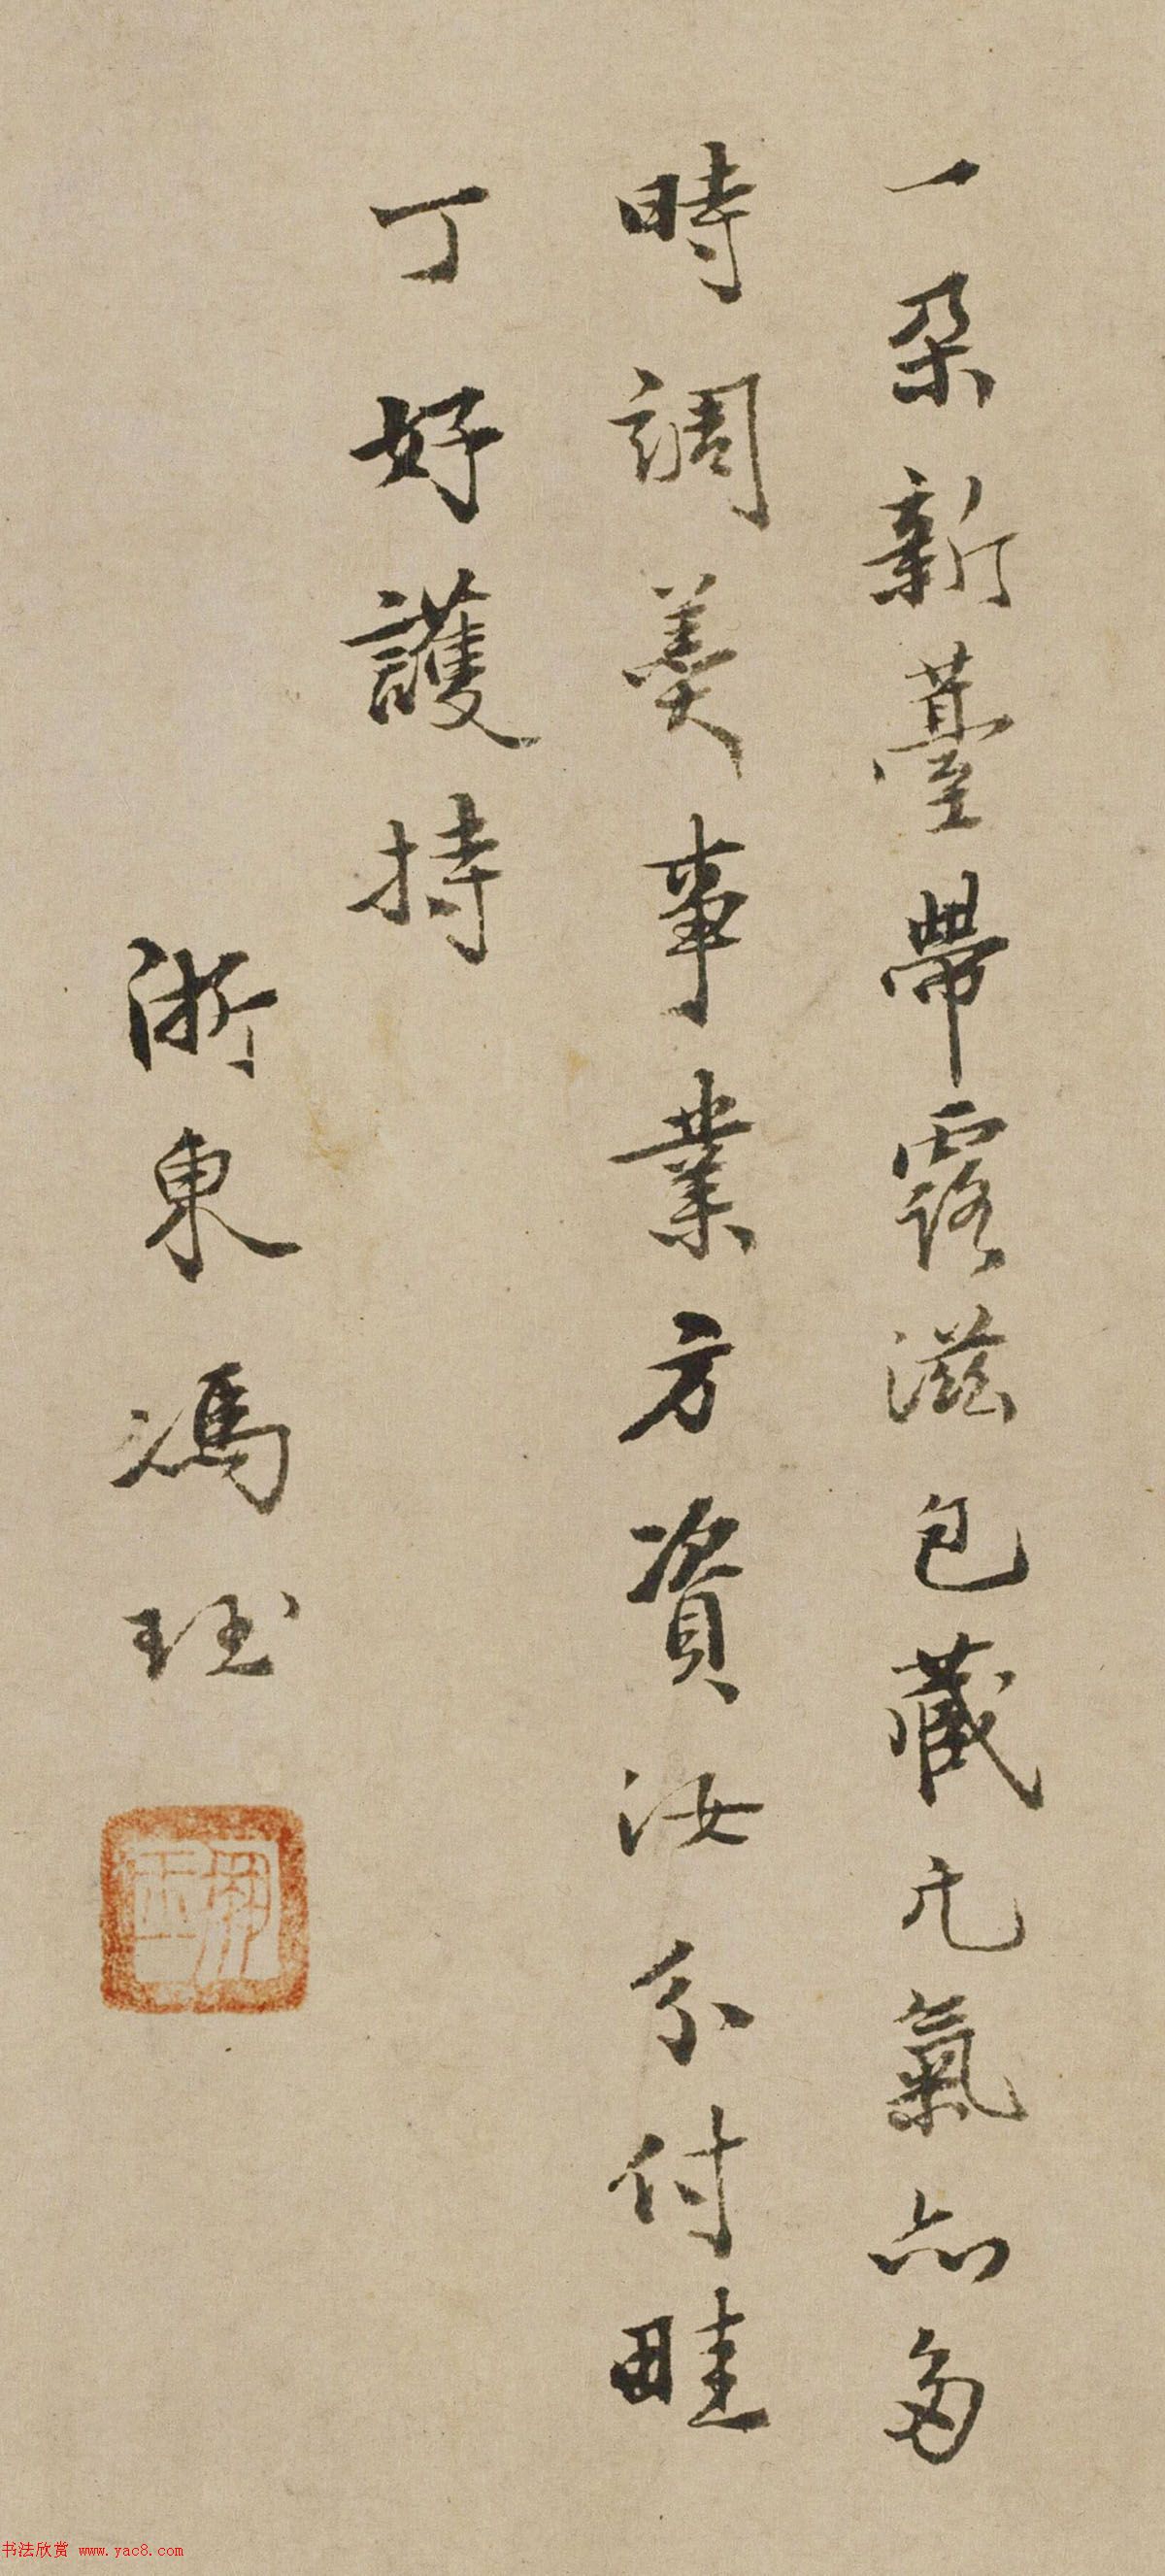 一朵新薹帶露滋包藏元氣亦多
時調羹事業方資汝分付畦
丁好護持
浙東馮玨
书法欣赏 www.yac8.com